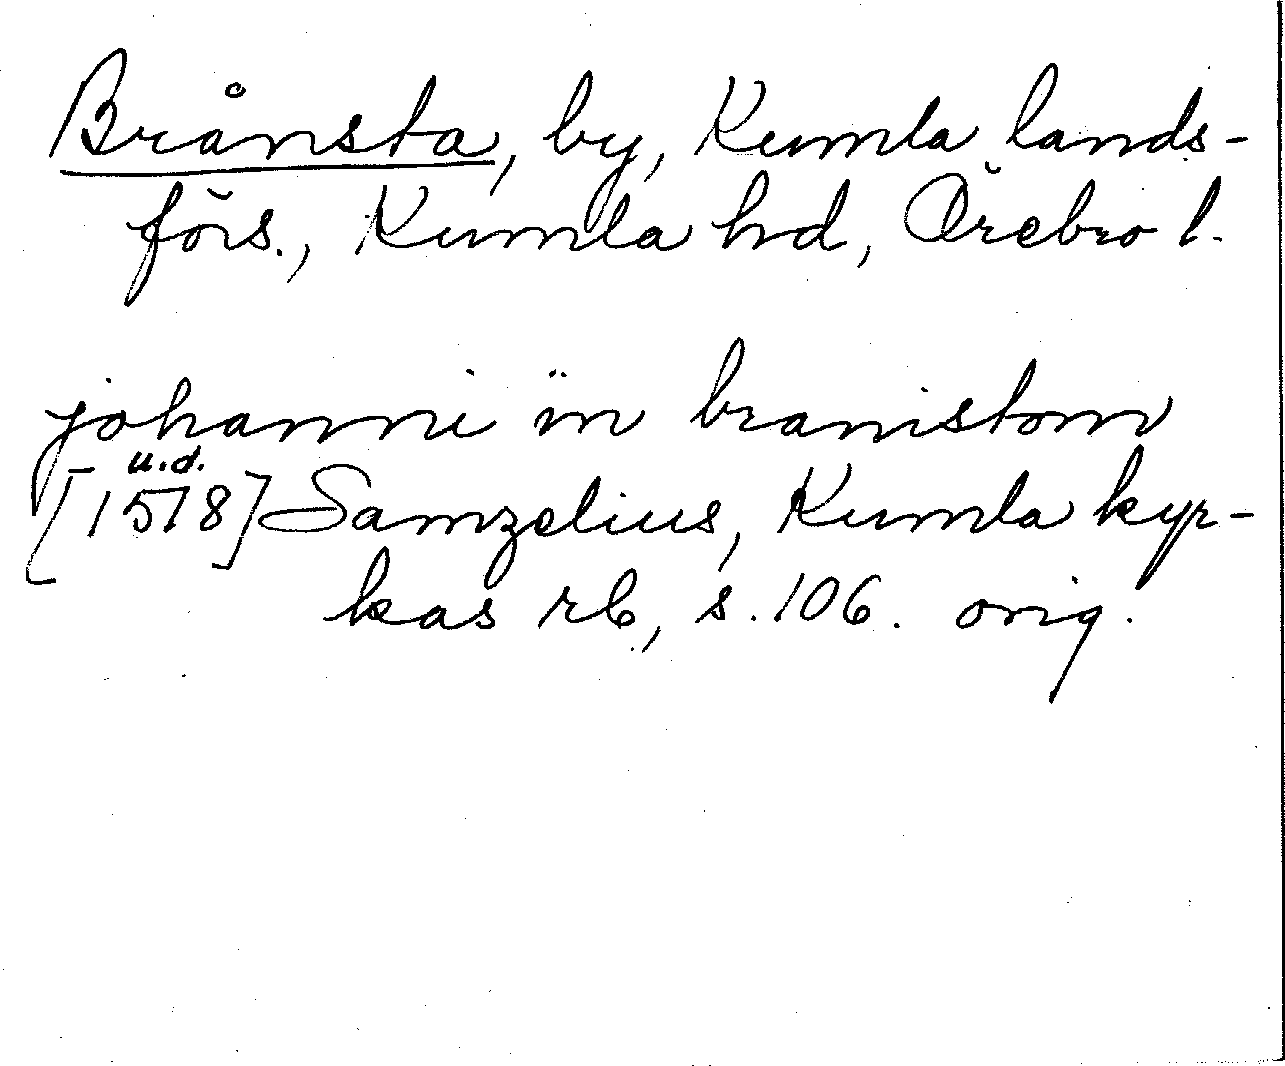 Brånsta, by, Kumla lands-
förs., Kumla hd, Örebro l.
johanni in branistom
u.d.
[1578] Samzelius, Kumla kyr-
kas rb, s. 106. orig.